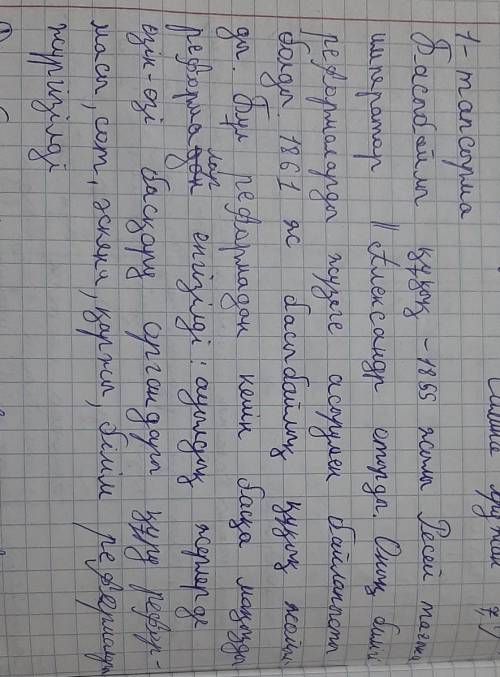 7)
1 - тапсырма
Басыбайлы құқық - 1855 жылы Ресей тағына
император II Александр отырды. Оның билігі
реформаларды жүзеге асырумен байланысты
болды. 1861 ж басыбайлық құқық жойыл
ды. Бұл реформадан кейін басқа маңызды
реформалар енгізілді: ауылдық жерлерде
өзін-өзі басқару органдары құру рефор-
масы, сот, әскери, қаржы, білім реформасы
жүргізілді